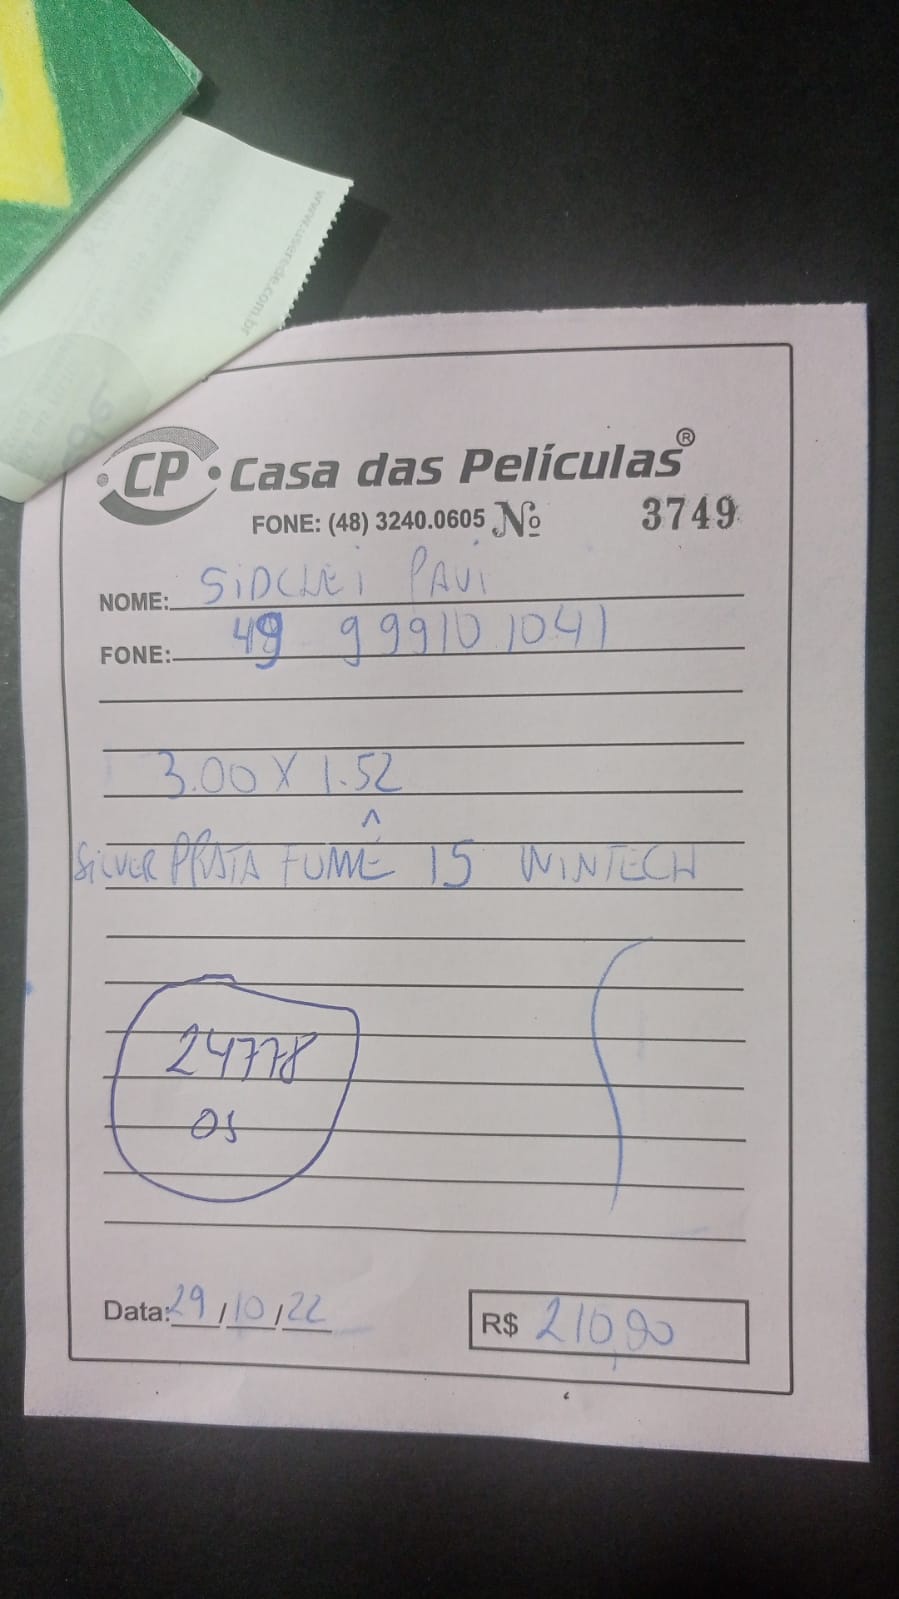 www.userede.com.br
CP Casa das Películas®
FONE: (48) 3240.0605 Nº 3749
NOME: SIDCLEI PAVI
FONE: 49 999101041
3.00 X 1.52
SILVER PRATA FUMÊ 15 WINTECH
24778
OS
Data: 29/10/22
R$ 210,90